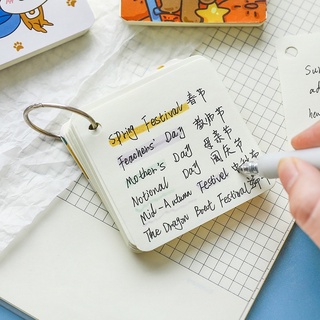 Spring Festival 春节
Teachers' Day 教师节
Mother's Day 母亲节
National Day 国庆节
Mid-Autumn Festival
The Dragon Boat Festival